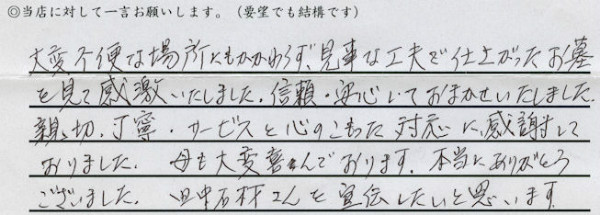 ◎当店に対して一言お願いします。(要望でも結構です)
大変不便な場所にもかかわらず、見事な工夫で仕上がったお墓
を見て感激いたしました。信頼・安心しておまかせいたしました。
親切、丁寧・サービスと心のこもった対応に、感謝して
おりました。 母も大変喜んでおります。本当にありがとう
ございました。 田中石材さんを宣伝したいと思います